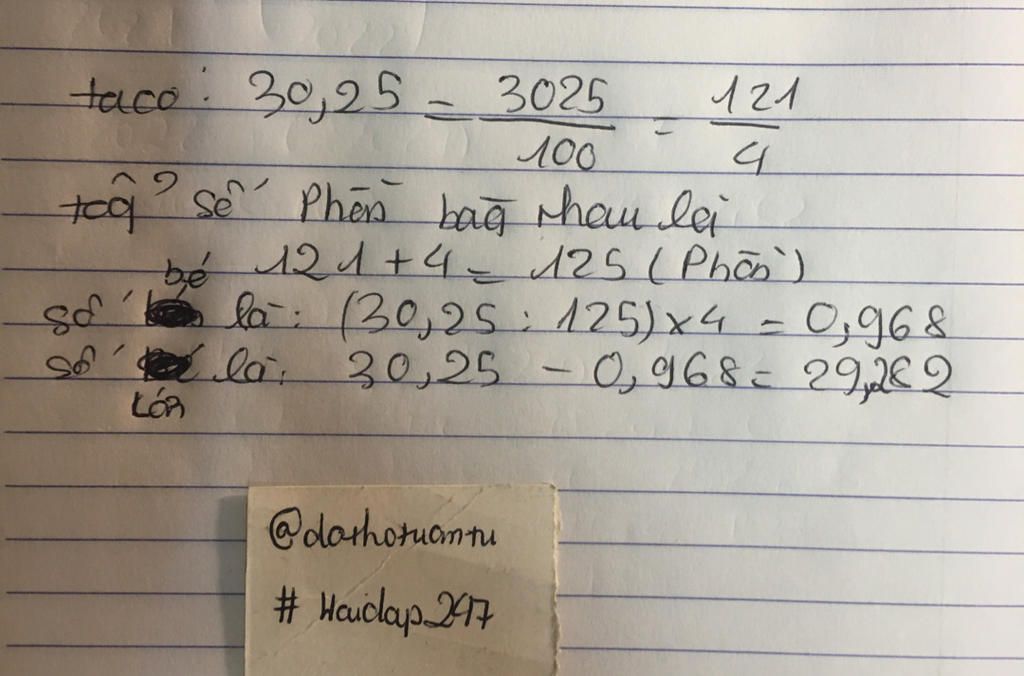 ta có: 30,25 = 3025/100 = 121/4
tổng số phần bằng nhau là
121 + 4 = 125 (Phần)
số bé là: (30,25 : 125) x 4 = 0,968
số lớn là: 30,25 - 0,968 = 29,282
@dathotuantu
# Hoidap247